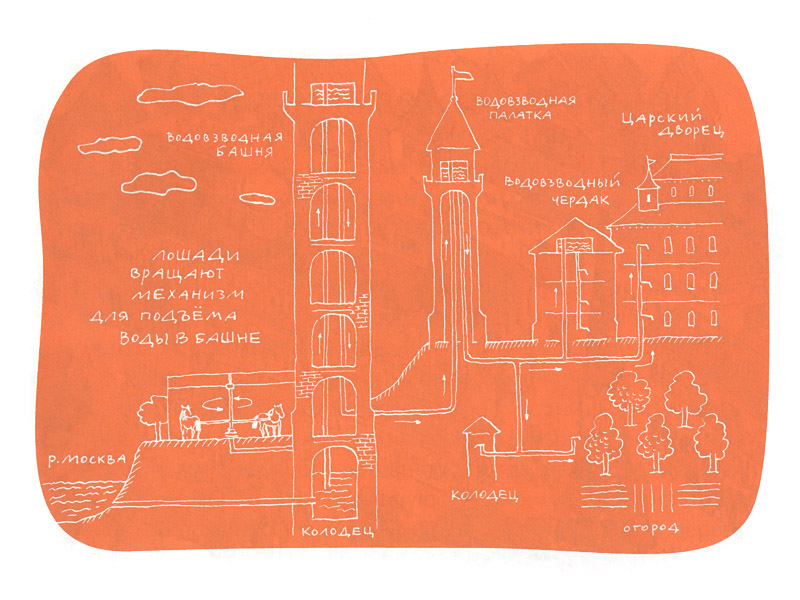 ВОДОВЗВОДНАЯ
БАШНЯ
ВОДОВЗВОДНАЯ
ПАЛАТКА
ЦАРСКИЙ
ДВОРЕЦ
ВОДОВЗВОДНЫЙ
ЧЕРДАК
ЛОШАДИ
ВРАЩАЮТ
МЕХАНИЗМ
ДЛЯ ПОДЪЁМА
ВОДЫ В БАШНЕ
Р. МОСКВА
КОЛОДЕЦ
КОЛОДЕЦ
ОГОРОД